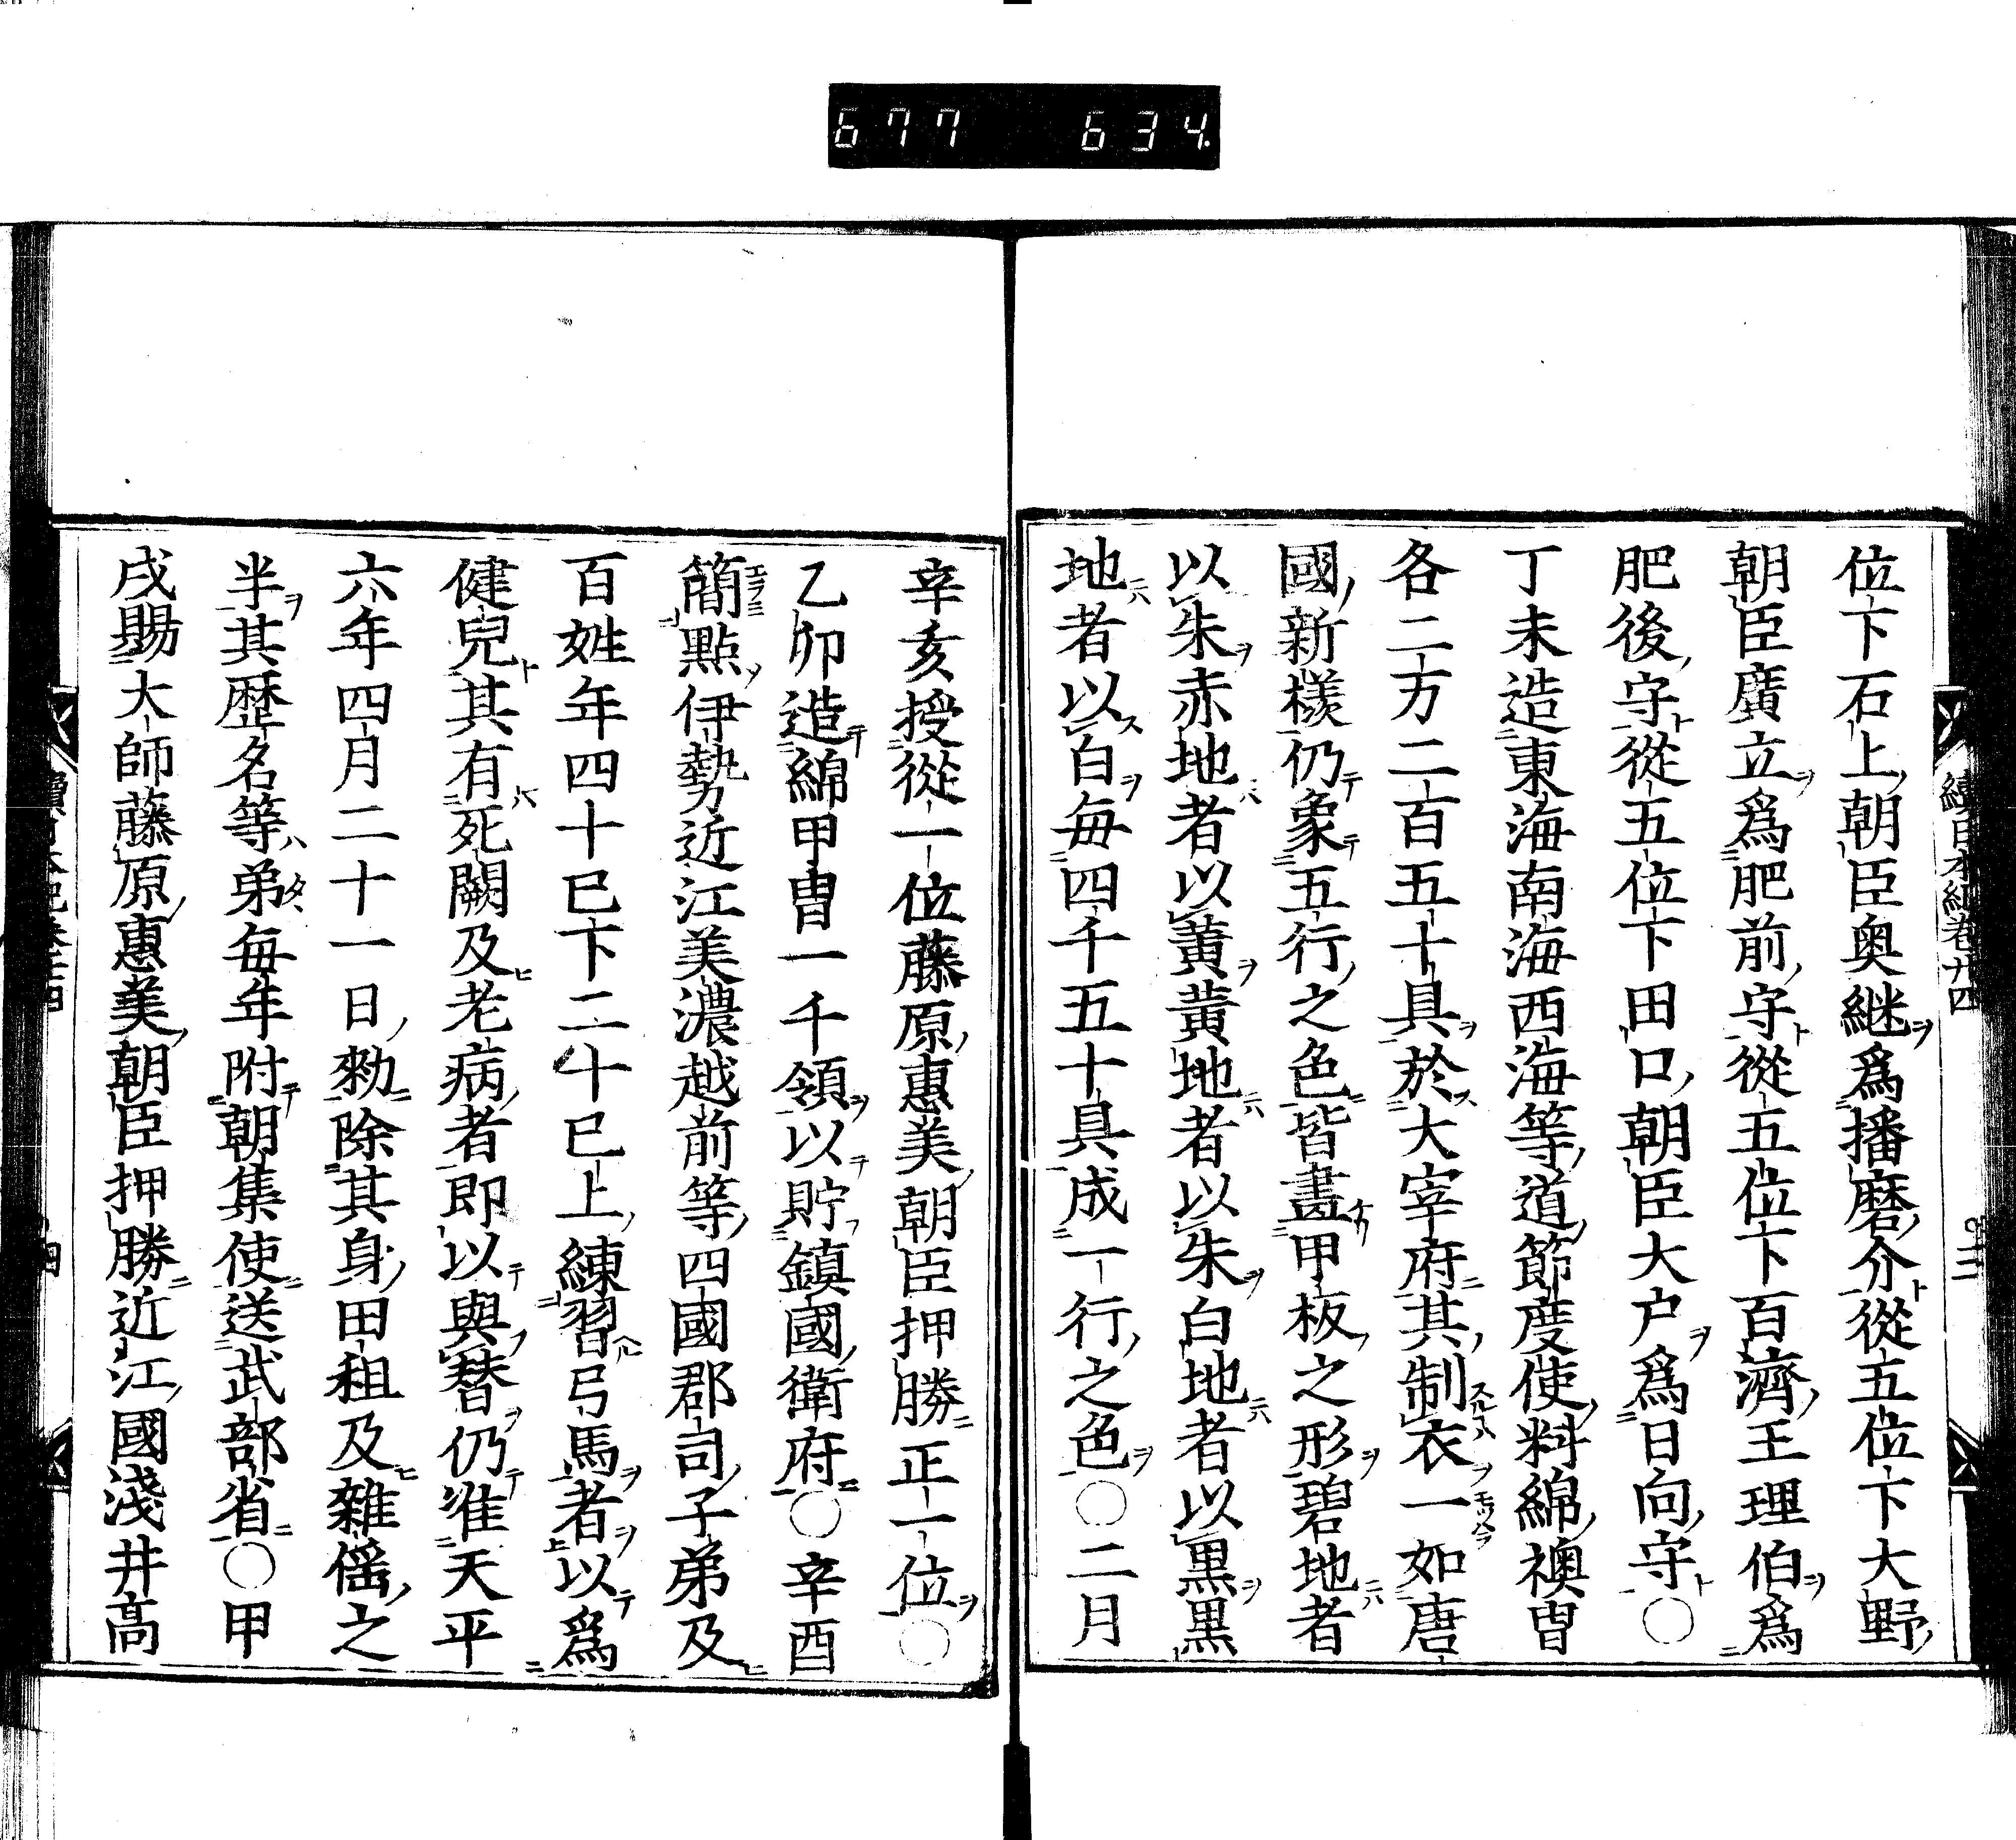 677 634.
續日本紀卷廿四
位下石上朝臣奥継爲播磨介從五位下大野
朝臣廣立爲肥前守從五位下百濟王理伯爲
肥後守從五位下田口朝臣大户爲日向守○
丁未造東海南海西海等道節度使料綿襖冑
各二万二百五十具於大宰府其制衣一如唐
國新樣仍象五行之色皆畵甲板之形碧地者
以朱赤地者以黃黃地者以朱白地者以黒黒
地者以白毎四千五十具成一行之色○二月
辛亥授從一位藤原惠美朝臣押勝正一位○
乙卯造綿甲冑一千領以貯鎮國衛府○辛酉
簡點伊勢近江美濃越前等四國郡司子弟及
百姓年四十已下二十已上練習弓馬者以爲
健兒其有死闕及老病者即以與替仍准天平
六年四月二十一日勑除其身田租及雜徭之
半其歴名等弟毎年附朝集使送武部省○甲
戌賜大師藤原惠美朝臣押勝近江國淺井高